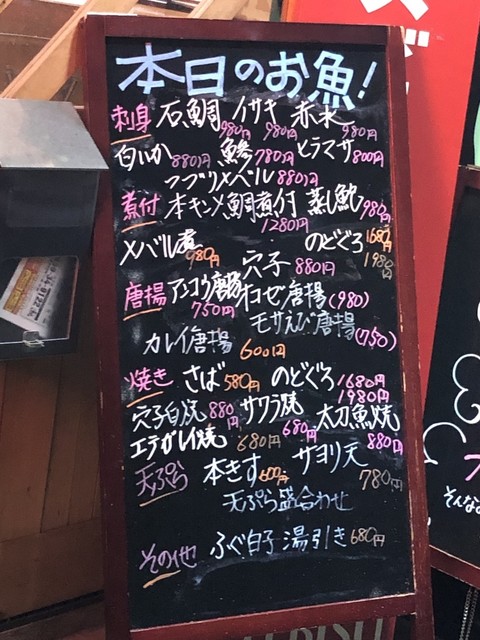 本日のお魚!
刺身 石鯛 980円 イサキ 980円 赤水 980円
白いか 880円 鯵 780円 ヒラマサ 800円
つづりメバル 880円
煮付 本キンメ鯛煮付 1280円 蒸し鮑 980円
メバル煮 980円 穴子 880円 のどぐろ 1680円 1980円
唐揚 アンコウ唐揚 750円 オコゼ唐揚 (980)
カレイ唐揚 600円 モサえび唐揚 (750)
焼き さば 580円 のどぐろ 1680円 1980円
穴子白焼 880円 サワラ焼 680円 太刀魚焼 880円
エテガレイ焼 680円
天ぷら 本きす 600円 サヨリ天 780円
天ぷら盛合わせ
その他 ふぐ白子 湯引き 680円
そんなの